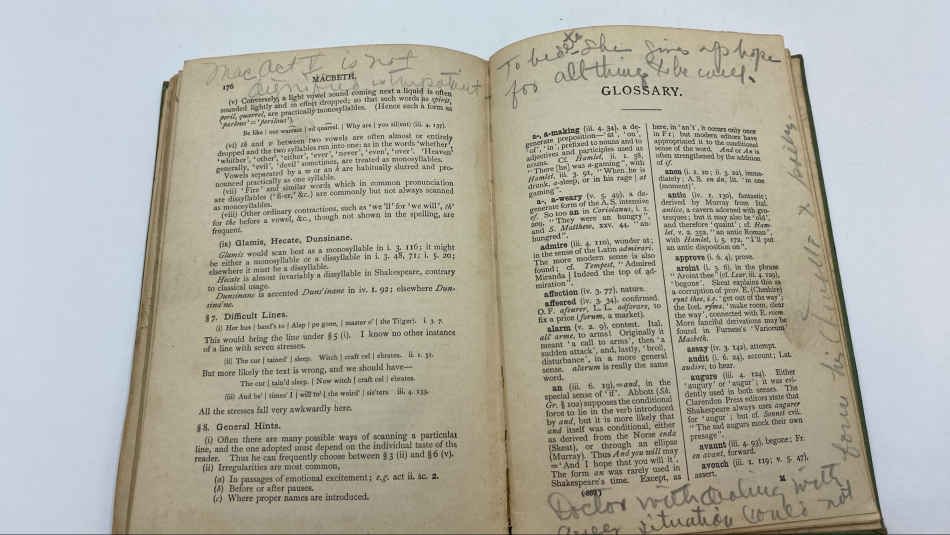 Mac Act V is not
dignified important
176 MACBETH.
(v) Conversely, a light vowel sound coming next a liquid is often
sounded lightly and in effect dropped; so that such words as spirit,
peril, quarrel, are practically monosyllables. (Hence such a form as
'parlous' = 'perilous').
Be like | our warrant | ed quarrel. | Why are | you sil(ent) (iii. 4. 137).
(vi) th and v between two vowels are often almost or entirely
dropped and the two syllables run into one: as in the words 'whether,'
'whither,' 'other,' 'either,' 'ever,' 'never,' 'even,' 'over.' 'Heaven'
generally, 'evil,' 'devil' sometimes, are treated as monosyllables.
Vowels separated by a w or an h are habitually slurred and pro-
nounced practically as one syllable.
(vii) 'Fire' and similar words which in common pronunciation
are dissyllables ('fi-er,' &c.) are commonly but not always scanned
as monosyllables.
(viii) Other ordinary contractions, such as 'we'll' for 'we will', th'
for the before a vowel, &c., though not shown in the spelling, are
frequent.
(ix) Glamis, Hecate, Dunsinane.
Glamis would scan best as a monosyllable in i. 3. 116; it might
be either a monosyllable or a dissyllable in i. 3. 48, 71; i. 5. 20;
elsewhere it must be a dissyllable.
Hecate is almost invariably a dissyllable in Shakespeare, contrary
to classical usage.
Dunsinane is accented Duns'inane in iv. 1. 92; elsewhere Dun-
sina'ne.
§ 7. Difficult Lines.
(i) Her hus | band's to | Alep | po gone, | master o' | the Ti(ger). i. 3. 7.
This would bring the line under § 5 (i). I know no other instance
of a line with seven stresses.
(ii) The cur | tained | sleep. Witch | craft cel | ebrates. ii. 1. 51.
But more likely the text is wrong, and we should have—
The cur | tain'd sleep. | Now witch | craft cel | ebrates.
(iii) And be' | times' I | will to' | the weird' | sis'ters iii. 4. 133.
All the stresses fall very awkwardly here.
§ 8. General Hints.
(i) Often there are many possible ways of scanning a particular
line, and the one adopted must depend on the individual taste of the
reader. Thus he can frequently choose between § 3 (ii) and § 6 (v).
(ii) Irregularities are most common,
(a) In passages of emotional excitement; e.g. act ii. sc. 2.
(b) Before or after pauses.
(c) Where proper names are introduced.
To be She gives up hope
for all things to be
GLOSSARY.
a-, a-making (iii. 4. 34), a de-
generate preposition—'at', 'on',
'of', 'in', prefixed to nouns and to
adjectives and participles used as
nouns. Cf. Hamlet, ii. 2. 58,
"There [he] was a-gaming", with
Hamlet, iii. 3. 91, "When he is
drunk, a-sleep, or in his rage | at
gaming".
a-, a-weary (v. 5. 49), a de-
generate form of the A.S. intensive
of. So too an in Coriolanus, i. 1.
209, "They were an hungry",
and S. Matthew, xxv. 44, "an-
hungred".
admire (iii. 4. 110), wonder at;
in the sense of the Latin admirari.
The more modern sense is also
found; cf. Tempest, "Admired
Miranda | Indeed the top of ad-
miration".
affection (iv. 3. 77), nature.
affeered (iv. 3. 34), confirmed.
O.F. afeurer, L.L. adforare, to
fix a price (forum, a market).
alarm (v. 2. 9), content. Ital.
all' arme, to arms! Originally it
meant 'a call to arms', then 'a
sudden attack', and, lastly, 'broil,
disturbance', in a more general
sense. alarum is really the same
word.
an (iii. 6. 19),=and, in the
special sense of 'if'. Abbott (Sh.
Gr. § 102) supposes the conditional
force to lie in the verb introduced
by and, but it is more likely that
and itself was conditional, either
as derived from the Norse enda
(Skeat), or through an ellipse
(Murray). Thus And you will may
='And I hope that you will it'.
The form an was rarely used in
Shakespeare's time. Except, as
here, in 'an't', it occurs only once
in Fr; but modern editors have
appropriated it to the conditional
sense of the word. And or An is
often strengthened by the addition
of if.
anon (i. 1. 10; ii. 3. 22), imme-
diately; A.S. on án, lit. 'in one
(moment)'.
antic (iv. 1. 130), fantastic;
derived by Murray from Ital.
antico, a cavern adorned with gro-
tesques; but it may also be 'old',
and therefore 'quaint'; cf. Ham-
let, v. 2. 352, "an antic Roman",
with Hamlet, i. 5. 172, "I'll put
an antic disposition on".
approve (i. 6. 4), prove.
aroint (i. 3. 6), in the phrase
"Aroint thee" (cf. Lear, iii. 4. 129),
'begone'. Skeat explains this as
a corruption of prov. E. (Cheshire)
rynt thee, i.e. 'get out of the way';
the Icel. ryma, 'make room, clear
the way', connected with E. room.
More fanciful derivations may be
found in Furness's 'Variorum'
Macbeth.
assay (iv. 3. 142), attempt.
audit (i. 6. 27), account; Lat.
audire, to hear.
augure (iii. 4. 124). Either
'augury' or 'augur'; it was evi-
dently used in both senses. The
Clarendon Press editors state that
Shakespeare always uses augurer
for 'augur'; but cf. Sonnet cvii.
"The sad augurs mock their own
presage".
avaunt (iii. 4. 93), begone; Fr.
en avant, forward.
avouch (iii. 1. 119; v. 5. 47),
assert.
(867) M
Doctor with dealing with
queer situation could not